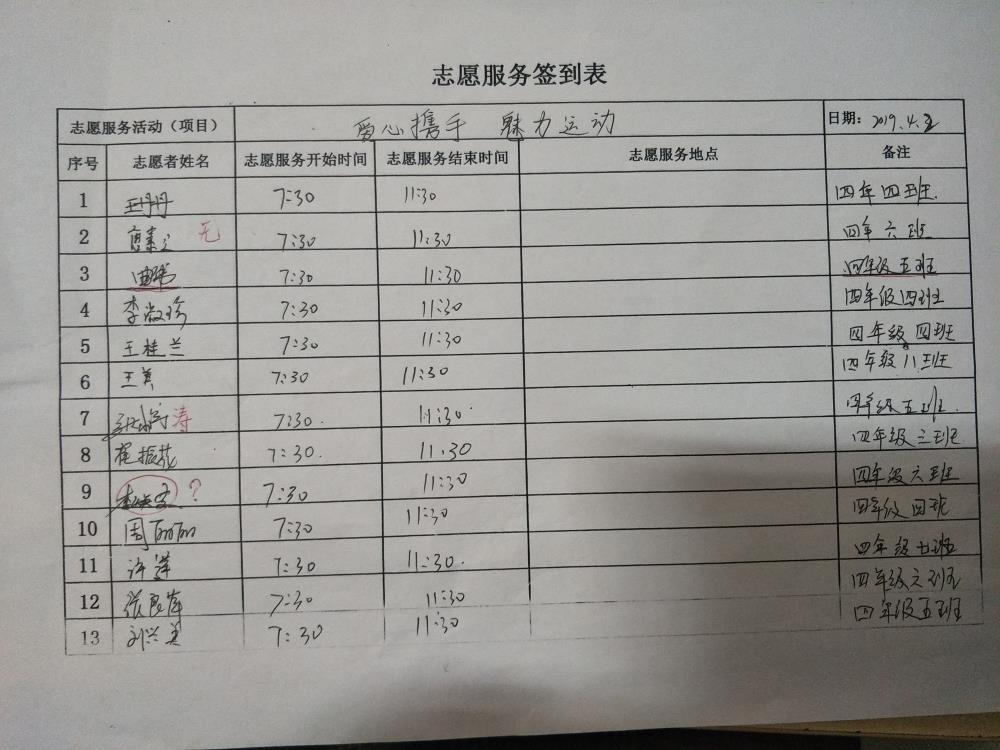 志愿服务签到表
志愿服务活动（项目） 爱心携手 魅力运动 日期：2019.4.2
序号 志愿者姓名 志愿服务开始时间 志愿服务结束时间 志愿服务地点 备注
1 王丹丹 7:30 11:30 四年四班.
2 无 7:30 11:30 四年六班
3 7:30 11:30 四年级五班
4 李淑珍 7:30 11:30 四年级四班
5 王桂兰 7:30 11:30 四年级四班
6 王美 7:30 11:30 四年级八班
7 涛 7:30. 11:30. 四年级五班.
8 崔振花 7:30. 11.30 四年级三班
9 ? 7:30 11:30 四年级六班
10 周丽丽 7:30 11:30 四年级四班
11 许萍 7:30 11:30. 四年级七班
12 张良萍 7:30 11:30 四年级六班
13 刘兴美 7:30 11:30 四年级五班